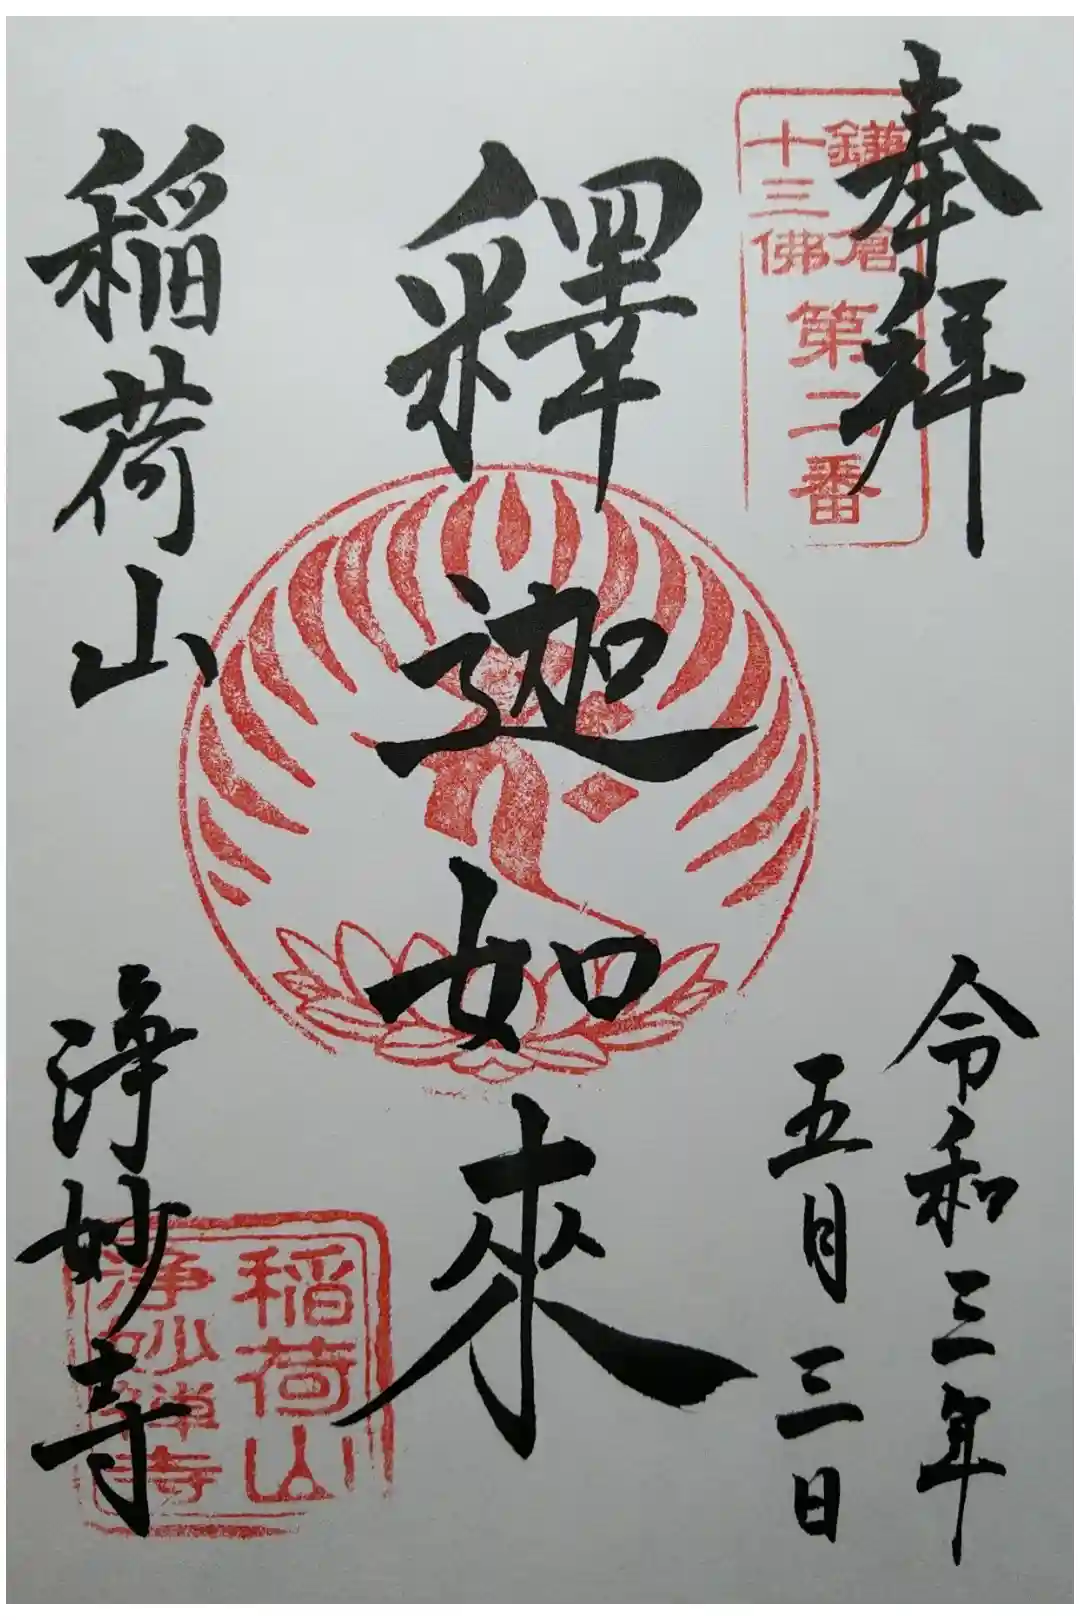 奉拜
鎌倉
十三佛
第二番
令和三年
五月三日
釋迦如來
稲荷山
浄妙寺
稲荷山
浄妙禅寺